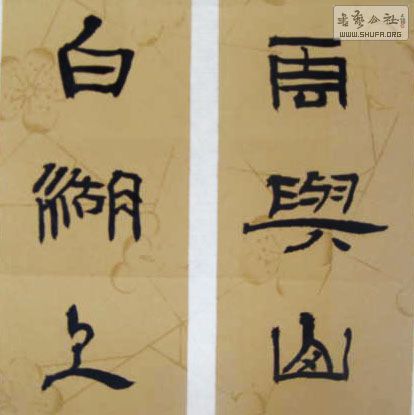 書藝公社
WWW.SHUFA.ORG
雲與山
白湖上